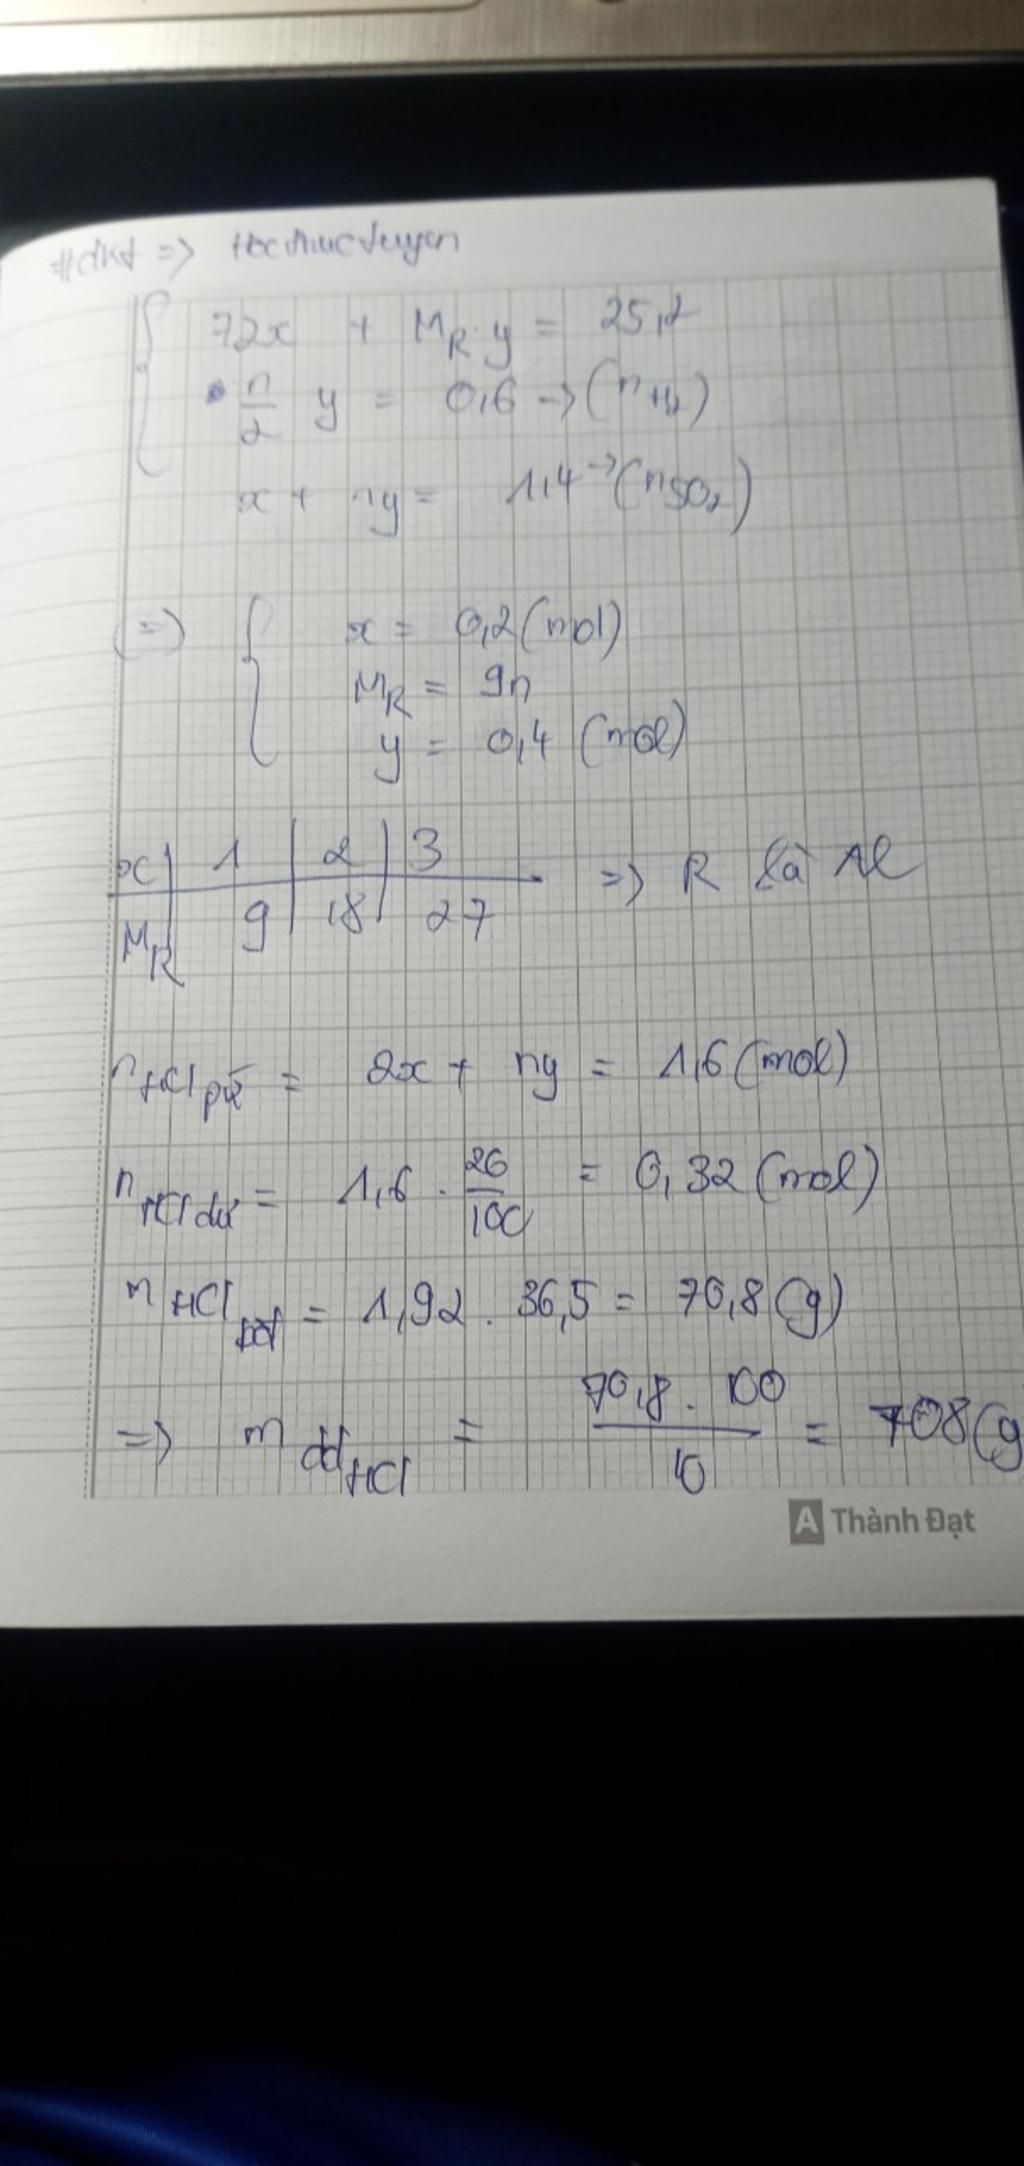 #dkt => Hocthuctuyen
72x + M_R.y = 25,2
n/2 y = 0,6 -> (n_H2)
x + ny = 1,4 -> (n_SO2)
(=>) x = 0,2 (mol)
M_R = 9n
y = 0,4 (mol)
x | 1 | 2 | 3 => R là Al
M_R | 9 | 18 | 27
n_HCl pứ = 2x + ny = 1,6 (mol)
n_HCl dư = 1,6 . 20/100 = 0,32 (mol)
m_HCl = 1,92 . 36,5 = 70,8 (g)
=> m_ddHCl = 70,8 . 100 / 10 = 708 (g
A Thành Đạt